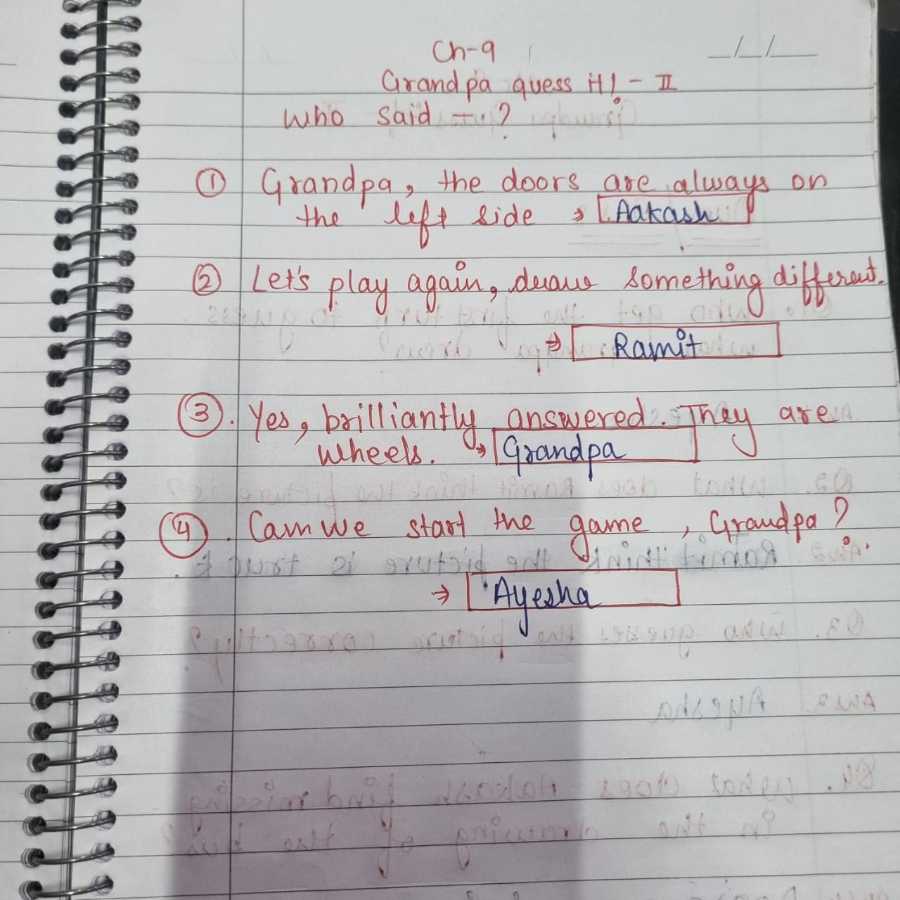 Ch-9
Grandpa guess it! - II
Who said - ?
① Grandpa, the doors are always on
the left side → Aakash
② Let's play again, draw something different.
⇒ Ramit
③. Yes, brilliantly answered. They are
wheels. → Grandpa
④. Can we start the game, Grandpa?
⇒ Ayesha